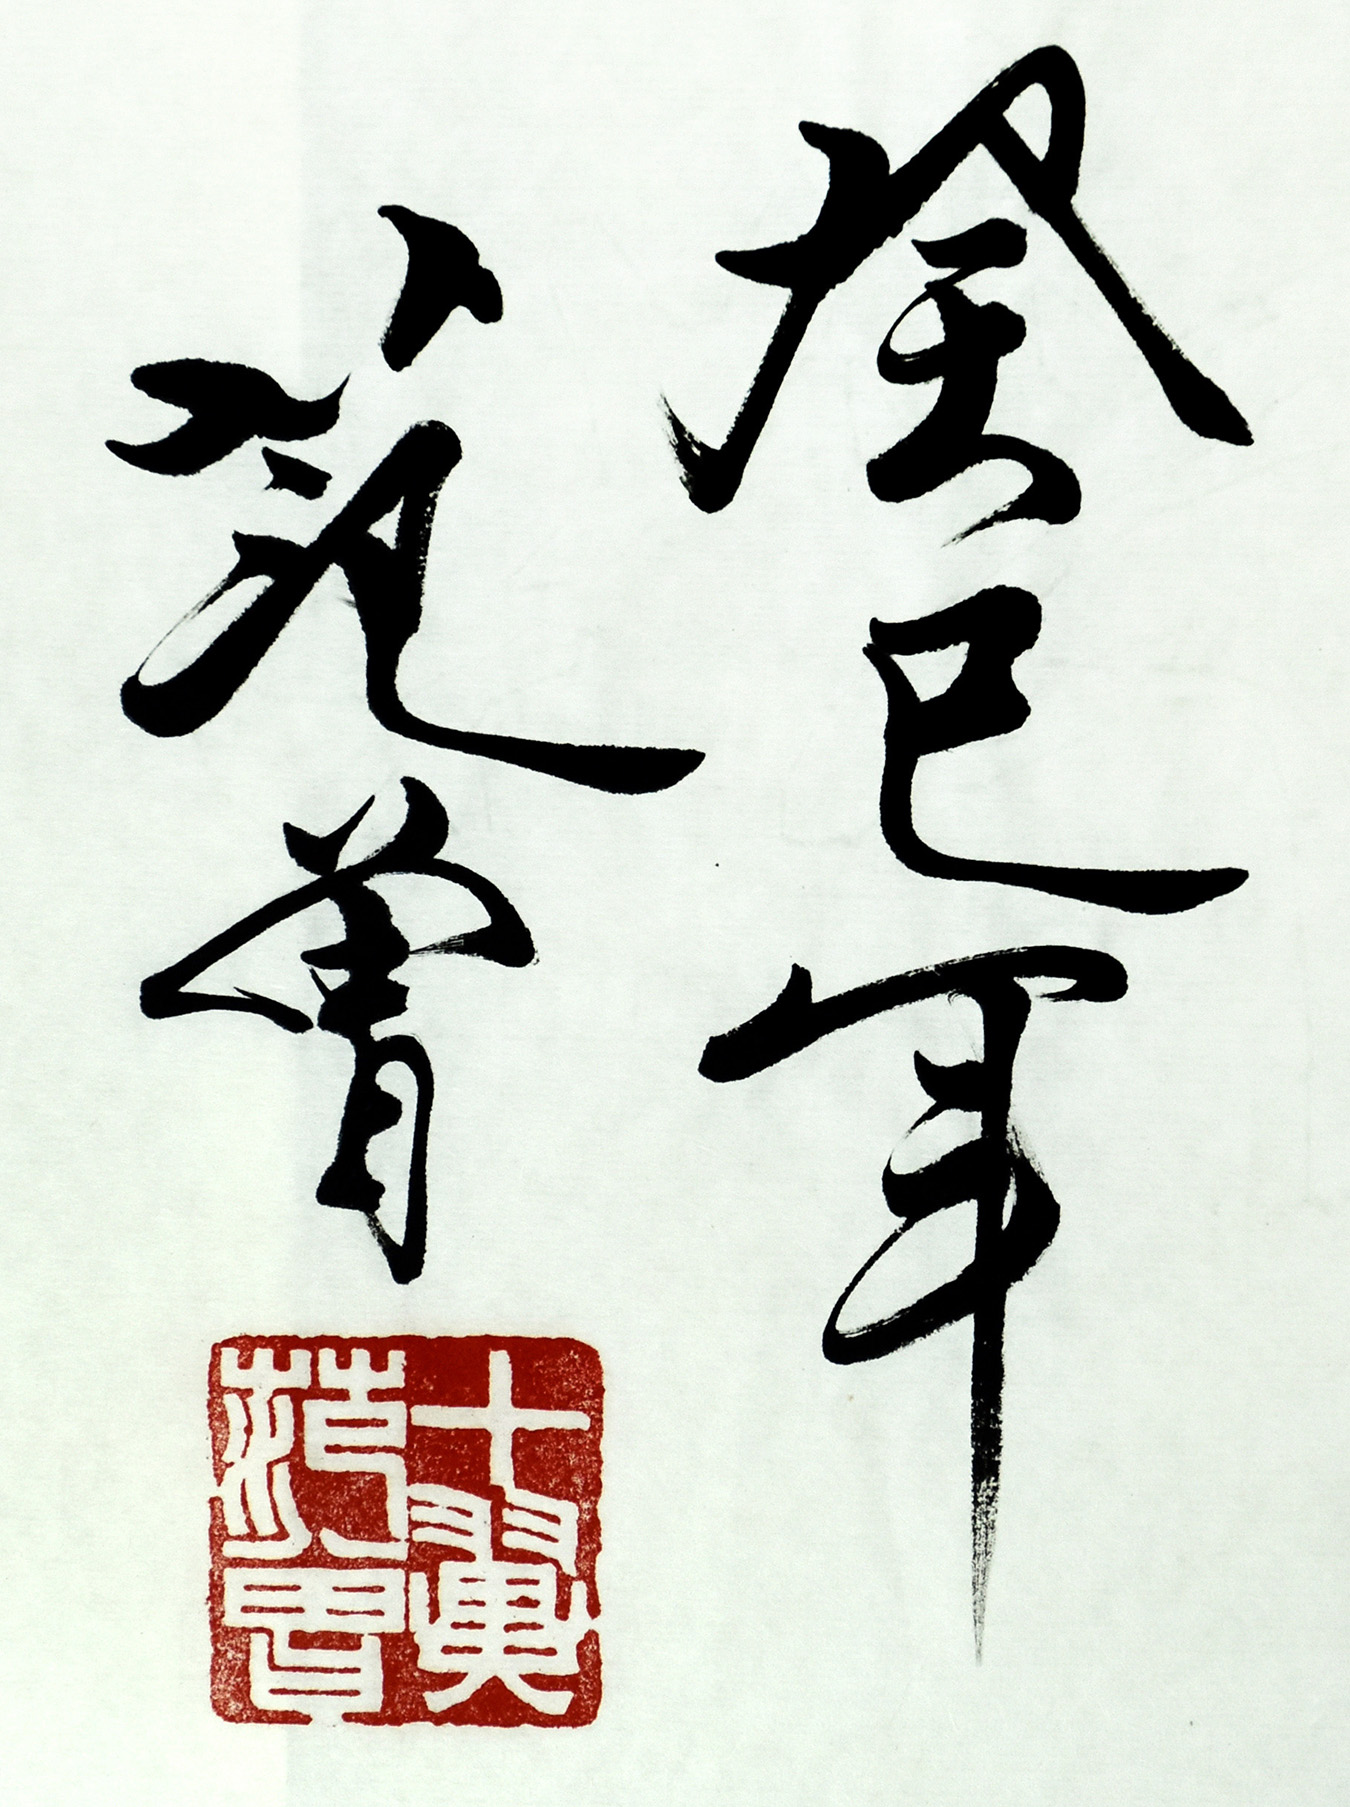 癸巳年
范曾
十翼
范曾